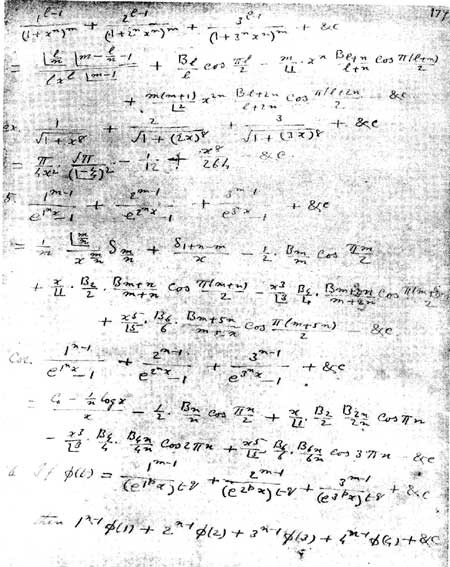 177
1^{l-1}/(1+x^n)^m + 2^{l-1}/(1+2^n x^n)^m + 3^{l-1}/(1+3^n x^n)^m + &c
= |l/n |m - l/n - 1 / l x^l |m-1 + B_l/l cos πl/2 - m/|1 · x^n B_{l+n}/l+n cos π(l+n)/2
+ m(m+1)/|2 x^{2n} B_{l+2n}/l+2n cos π(l+2n)/2 - &c
ex. 1/√1+x^8 + 2/√1+(2x)^8 + 3/√1+(3x)^8 + &c
5. 1^{m-1}/e^{1^n x}-1 + 2^{m-1}/e^{2^n x}-1 + 3^{m-1}/e^{3^n x}-1 + &c
= 1/m |m/n / x^{m/n} S_{m/n} + S_{1+n-m}/x - 1/2 · B_m/m cos πm/2
+ x/|1 · B_2/2 · B_{m+n}/m+n cos π(m+n)/2 - x^3/|3 B_4/4
+ x^5/|5 · B_6/6 · B_{m+5n} cos π(m+5n)/2 - &c
Cor. 1^{n-1}/e^{1^n x}-1 + 2^{n-1}/e^{2^n x}-1 + 3^{n-1}/e^{3^n x}-1 + &c
- 1/n log x / x - 1/2 · B_n/n cos πn/2 + x/|1 · B_2/2 · B_{2n}/2n cos πn
- x^3/|3 · B_4/4 · B_{4n}/4n cos 2πn + x^5/|5 B_6/6 · B_{6n}/6n cos 3πn - &c
6 If φ(t) = 1^{m-1}/ + 2^{m-1}/ + 3^{m-1}/ + &c
then 1^{n-1} φ(1) + 2^{n-1} φ(2) + 3^{n-1} φ(3) + 4^{n-1} φ(4) + &c